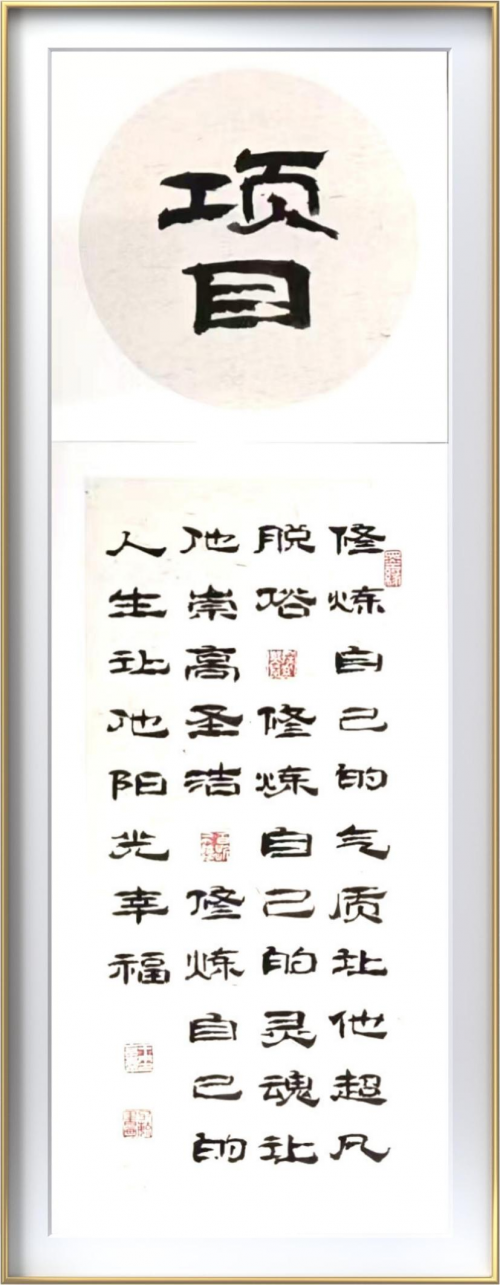 项
目
修炼自己的气质让他超凡
脱俗 修炼自己的灵魂让
他崇高圣洁 修炼自己的
人生让他阳光幸福